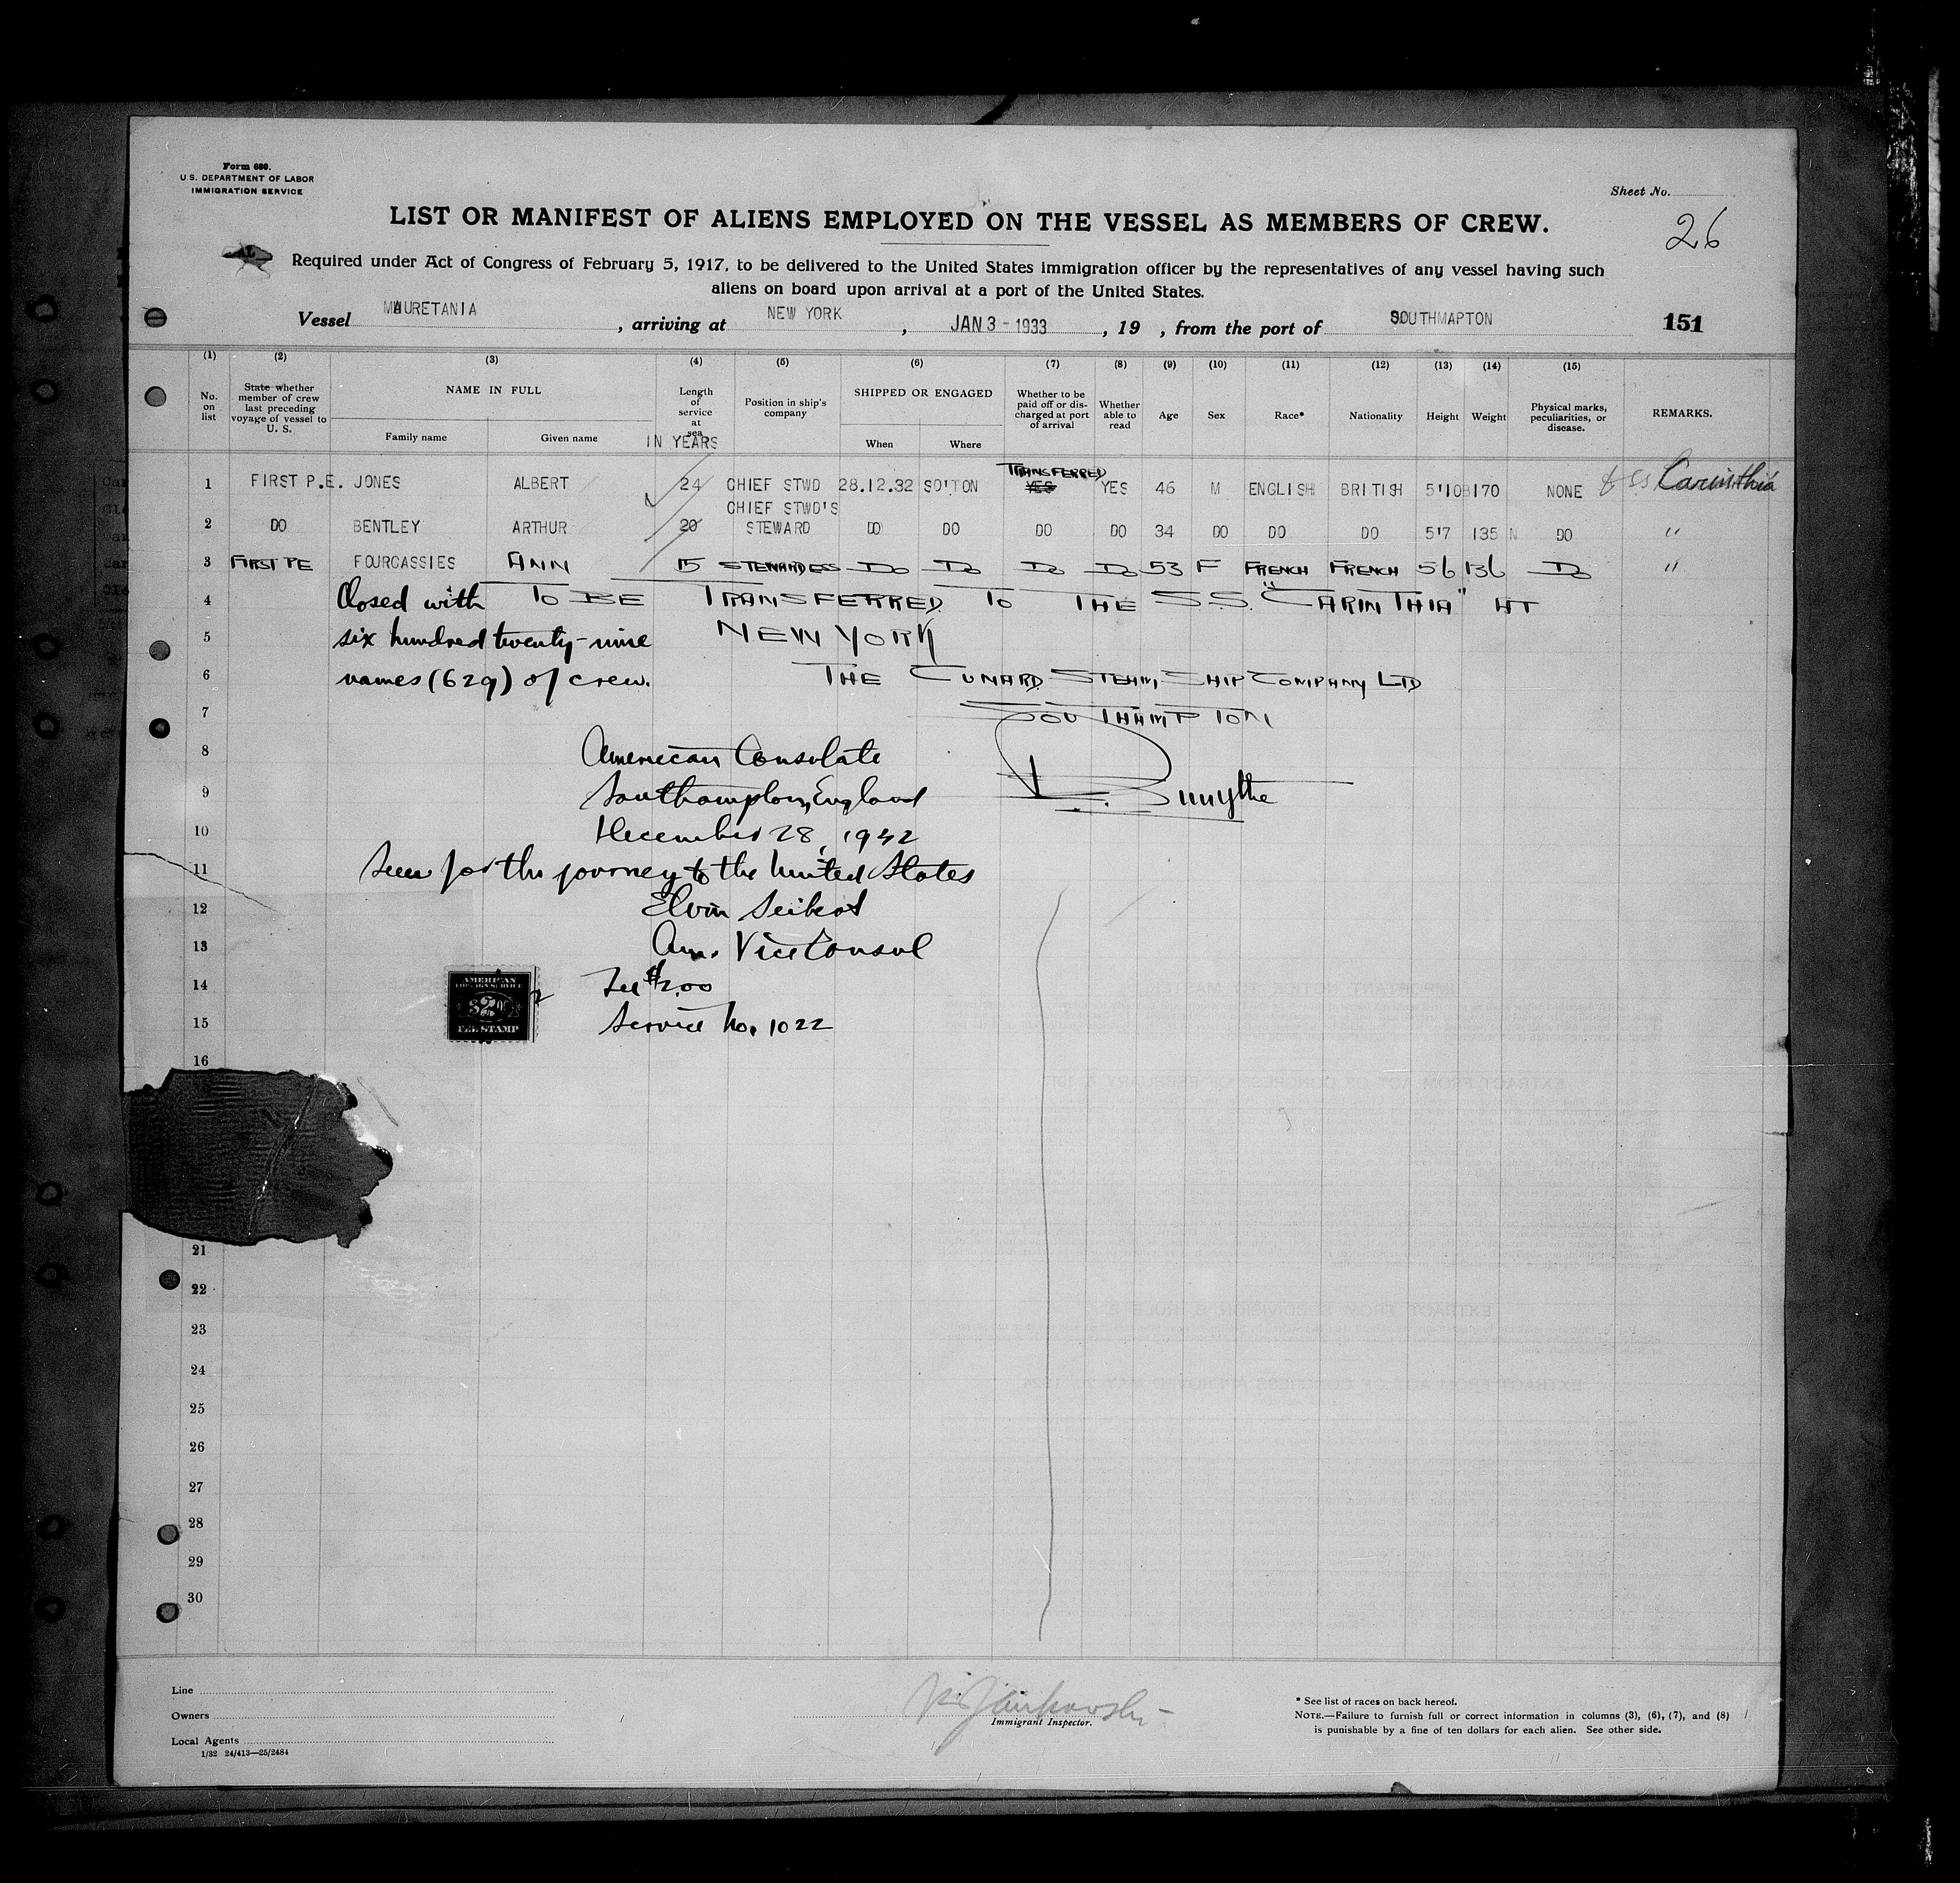 Form 680.
U.S. DEPARTMENT OF LABOR
IMMIGRATION SERVICE
Sheet No.
LIST OR MANIFEST OF ALIENS EMPLOYED ON THE VESSEL AS MEMBERS OF CREW.
26
Required under Act of Congress of February 5, 1917, to be delivered to the United States immigration officer by the representatives of any vessel having such
aliens on board upon arrival at a port of the United States.
Vessel MAURETANIA, arriving at NEW YORK, JAN 3 - 1933, 19 , from the port of SOUTHMAPTON 151
(1) (2) (3) (4) (5) (6) (7) (8) (9) (10) (11) (12) (13) (14) (15)
No. on list
State whether member of crew last preceding voyage of vessel to U. S.
NAME IN FULL
Family name Given name
Length of service at sea
IN YEARS
Position in ship's company
SHIPPED OR ENGAGED
When Where
Whether to be paid off or discharged at port of arrival
Whether able to read
Age Sex Race* Nationality Height Weight
Physical marks, peculiarities, or disease.
REMARKS.
TRANSFERRED
1 FIRST P.E. JONES ALBERT 24 CHIEF STWD 28.12.32 SO'TON YES YES 46 M ENGLISH BRITISH 5'10 170 NONE SS Carinthia
CHIEF STWD'S
2 DO BENTLEY ARTHUR 20 STEWARD DO DO DO DO 34 DO DO DO 5'7 135 DO "
3 FIRST PE FOURCASSIES ANN 15 STEWARDESS DO DO DO DO 53 F FRENCH FRENCH 56 136 DO "
4 Closed with TO BE TRANSFERRED TO THE S.S. "CARINTHIA" AT
5 six hundred twenty-nine NEW YORK
6 names (629) of crew. THE CUNARD STEAM SHIP COMPANY LTD
7 SOUTHAMPTON
8 American Consulate
9 Southampton, England Smythe
10 December 28, 1932
11 Seen for the journey to the United States
12 Elvin Seibert
13 Am. Vice Consul
14 Fee $2.00
AMERICAN
FOREIGN SERVICE
FEE STAMP
15 Service No. 1022
16
21
22
23
24
25
26
27
28
29
30
Line
Owners
Local Agents
1/32 24/413—25/2484
Immigrant Inspector.
* See list of races on back hereof.
NOTE.—Failure to furnish full or correct information in columns (3), (6), (7), and (8)
is punishable by a fine of ten dollars for each alien. See other side.